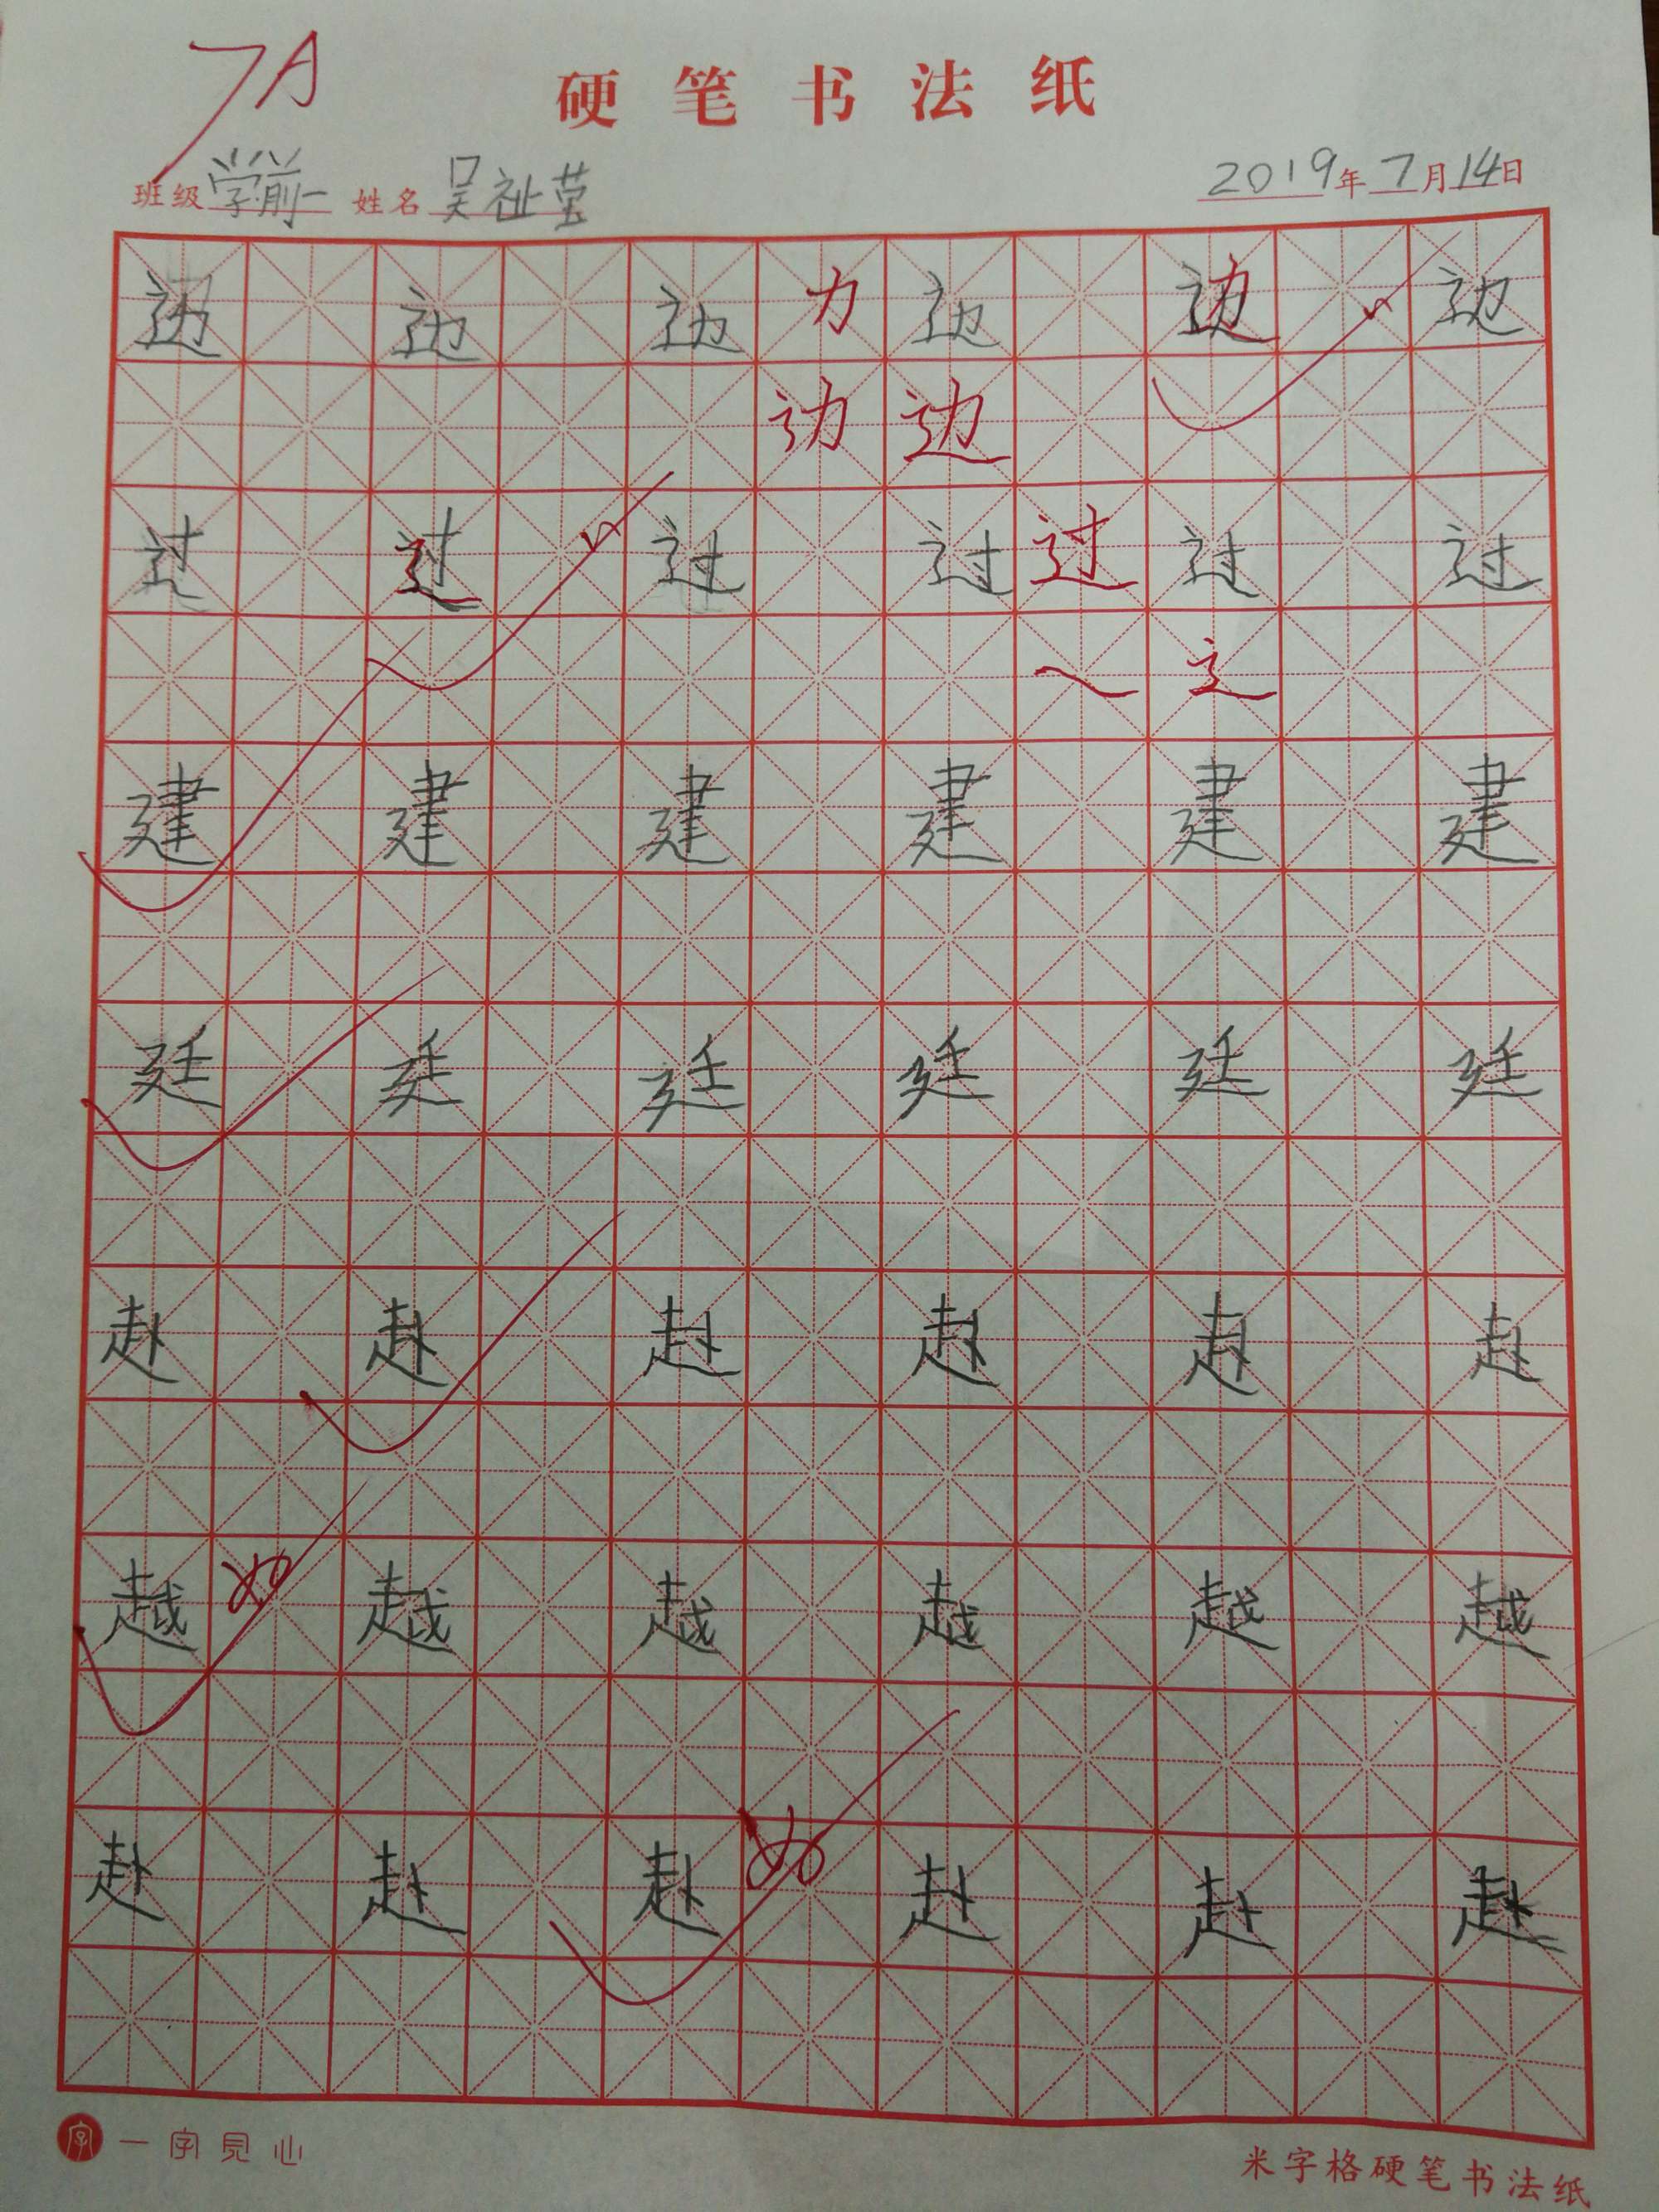 7A
硬笔书法纸
班级 学前一 姓名 吴祉莹 2019年7月14日
边 边 边 力 边 边 边
边 边
过 过 过 过 过 过 过
辶
建 建 建 建 建 建
廷 廷 廷 廷 廷 廷
赴 赴 赴 赴 赴 赴
越 越 越 越 越 越
赴 赴 赴 赴 赴 赴
字 一字见心
米字格硬笔书法纸